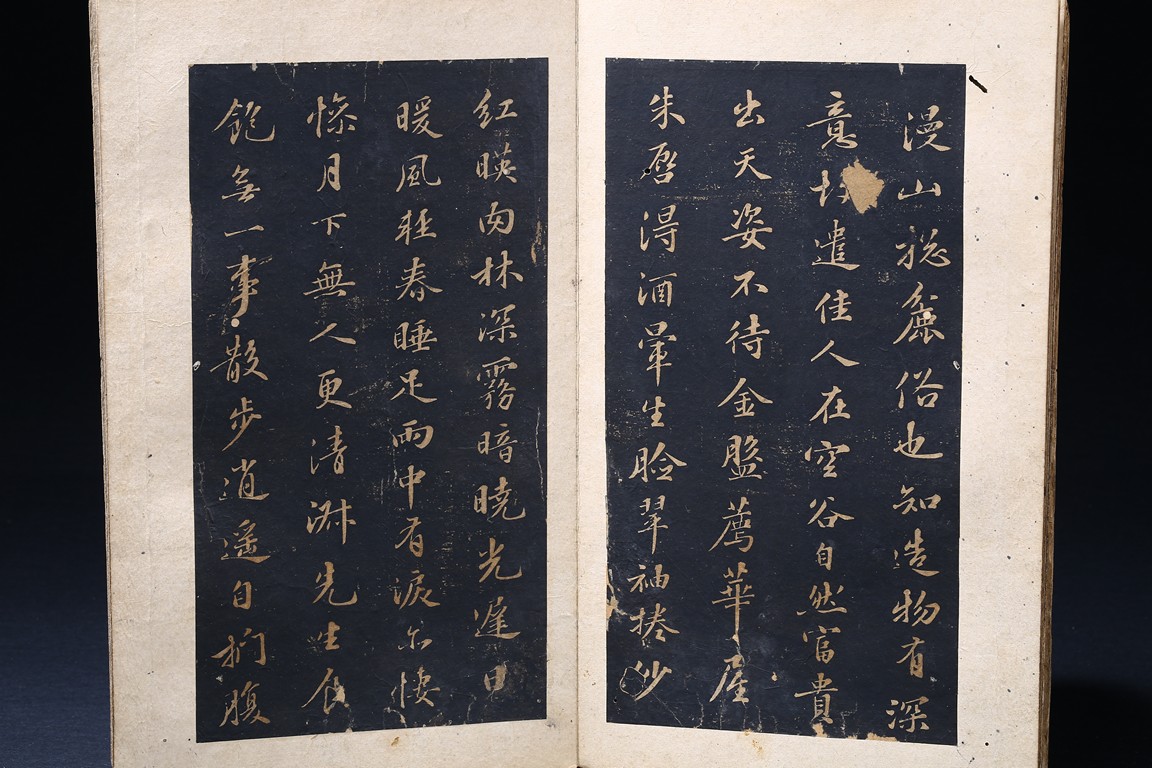 漫山揔麁俗也知造物有深
意遣佳人在空谷自然富貴
出天姿不待金盤薦華屋
朱唇得酒暈生臉翠袖捲紗
紅暎肉林深霧暗曉光遲日
暖風輕春睡足雨中有淚亦悽
慘月下無人更清淑先生食
飽無一事散步逍遙自捫腹